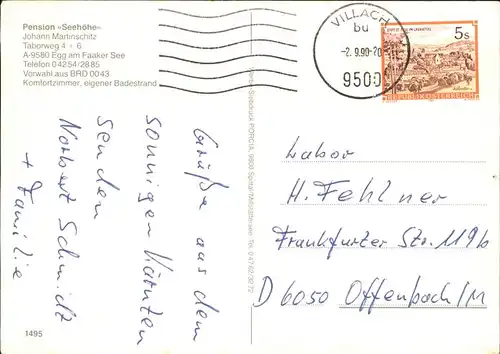 Pension »Seehöhe«
Johann Martinschitz
Taborweg 4 + 6
A-9580 Egg am Faaker See
Telefon 04254/2885
Vorwahl aus BRD 0043
Komfortzimmer, eigener Badestrand
Grüße aus dem
sonnigen Kärnten
senden
Norbert Schmidt
+ Familie
1495
VILLACH
bu
-2.9.90-20
9500
5s
REPUBLIK ÖSTERREICH
Labor
H. Fehlner
Frankfurter Str. 119b
D 6050 Offenbach/M